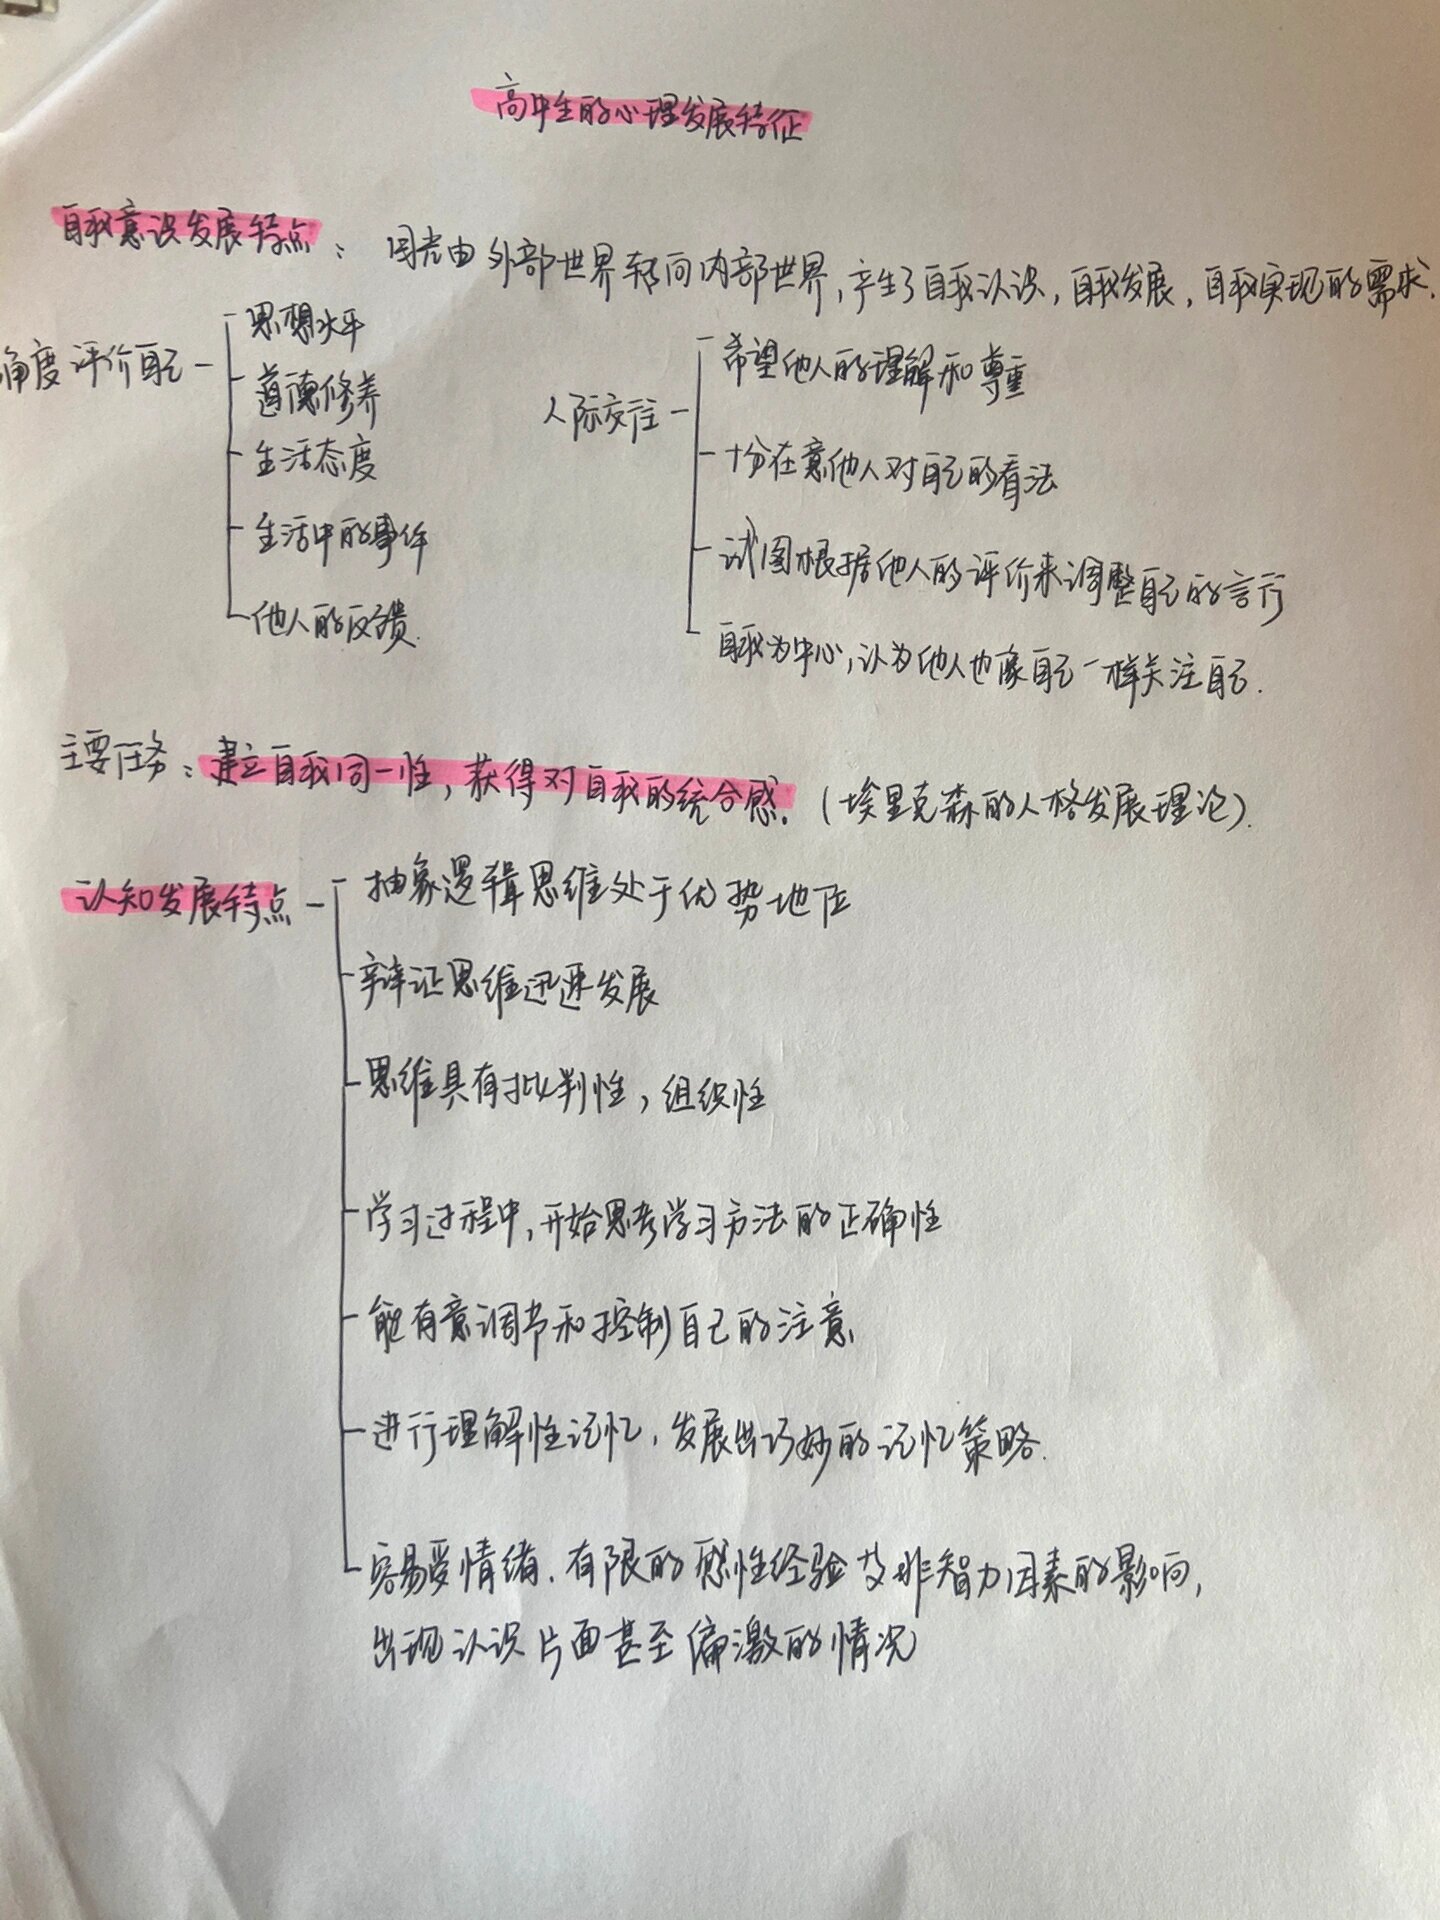 高中生的心理发展特征
自我意识发展特点：目光由外部世界转向内部世界，产生了自我认识，自我发展，自我实现的需求.
角度评价自己
思想水平
道德修养
生活态度
生活中的事件
他人的反馈.
人际交往
希望他人的理解和尊重
十分在意他人对自己的看法
试图根据他人的评价来调整自己的言行
自我为中心，认为他人也像自己一样关注自己.
主要任务：建立自我同一性，获得对自我的统合感.（埃里克森的人格发展理论）.
认知发展特点
抽象逻辑思维处于优势地位
辩证思维迅速发展
思维具有批判性，组织性
学习过程中，开始思考学习方法的正确性
能有意调节和控制自己的注意
进行理解性记忆，发展出巧妙的记忆策略.
容易受情绪、有限的感性经验及非智力因素的影响，
出现认识片面甚至偏激的情况